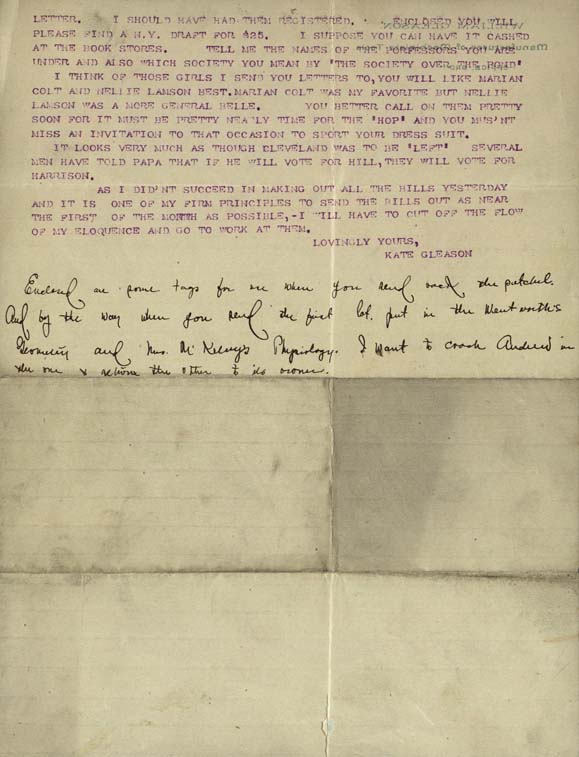 LETTER. I SHOULD HAVE HAD THEM REGISTERED. ENCLOSED YOU WILL
PLEASE FIND A N.Y. DRAFT FOR $25. I SUPPOSE YOU CAN HAVE IT CASHED
AT THE BOOK STORES. TELL ME THE NAMES OF THE PORFESSORS YOU ARE
UNDER AND ALSO WHICH SOCIETY YOU MEAN BY "THE SOCIETY OVER THE POND"
I THINK OF THOSE GIRLS I SEND YOU LETTERS TO, YOU WILL LIKE MARIAN
COLT AND NELLIE LAMSON BEST. MARIAN COLT WAS MY FAVORITE BUT NELLIE
LAMSON WAS A MORE GENERAL BELLE. YOU BETTER CALL ON THEM PRETTY
SOON FOR IT MUST BE PRETTY NEARLY TIME FOR THE "HOP" AND YOU MUS'NT
MISS AN INVITATION TO THAT OCCASION TO SPORT YOUR DRESS SUIT.
IT LOOKS VERY MUCH AS THOUGH CLEVELAND WAS TO BE "LEFT" SEVERAL
MEN HAVE TOLD PAPA THAT IF HE WILL VOTE FOR HILL, THEY WILL VOTE FOR
HARRISON.
AS I DID'NT SUCCEED IN MAKING OUT ALL THE BILLS YESTERDAY
AND IT IS ONE OF MY FIRM PRINCIPLES TO SEND THE BILLS OUT AS NEAR
THE FIRST OF THE MONTH AS POSSIBLE,-I WILL HAVE TO CUT OFF THE FLOW
OF MY ELOQUENCE AND GO TO WORK AT THEM.
LOVINGLY YOURS,
KATE GLEASON
Enclosed are some tags for use when you send back the satchel.
And by the way when you send the first lot, put in the Wentworth's
Geometry and Mrs. McKelvey's Physiology. I want to coach Andrew in
the one & return the other to its owner.
WILLIAM GLEASON